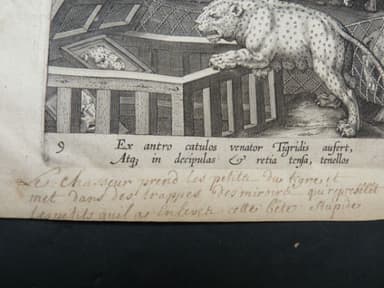 9 Ex antro catulos venator Tigridis aufert,
Atq; in decipulas & retia tensa, tenellos
Le chasseur prend les petits du tigre et
met dans des trappes des miroirs qui représentent
les petits qu'il a enlevés cette bête stupide